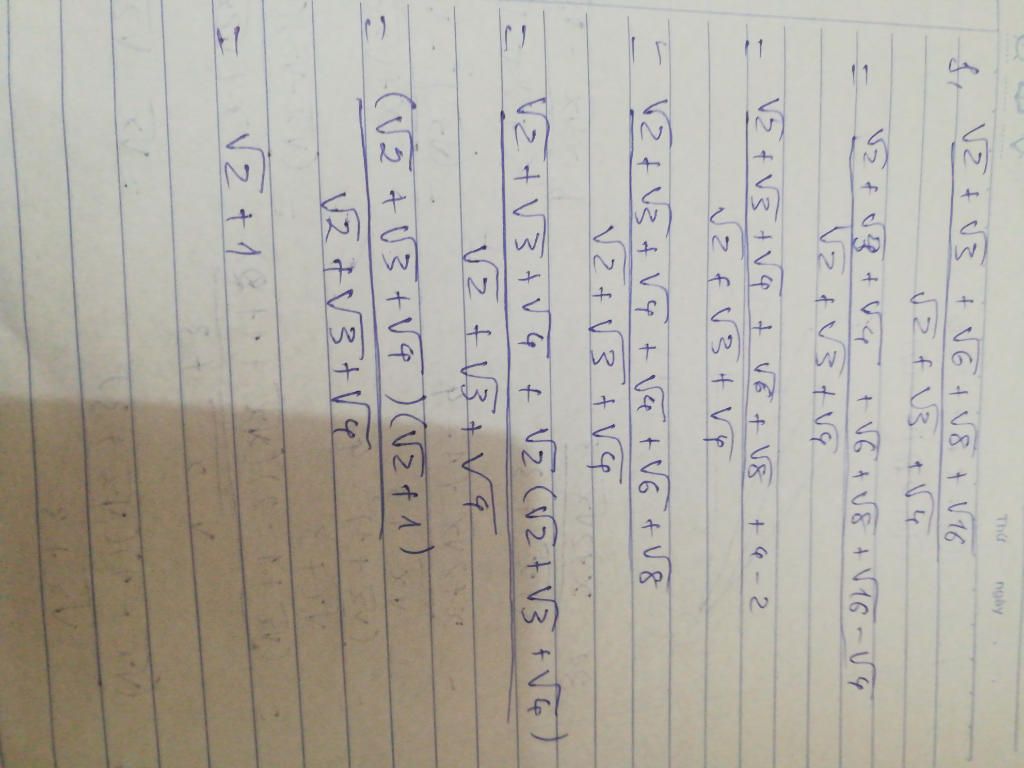 Thứ ngày
f, √2 + √3 + √6 + √8 + √16
√2 + √3 + √4
= √2 + √3 + √4 + √6 + √8 + √16 - √4
√2 + √3 + √4
= √2 + √3 + √4 + √6 + √8 + 4 - 2
√2 + √3 + √4
= √2 + √3 + √4 + √4 + √6 + √8
√2 + √3 + √4
= √2 + √3 + √4 + √2 (√2 + √3 + √4)
√2 + √3 + √4
= (√2 + √3 + √4) (√2 + 1)
√2 + √3 + √4
= √2 + 1